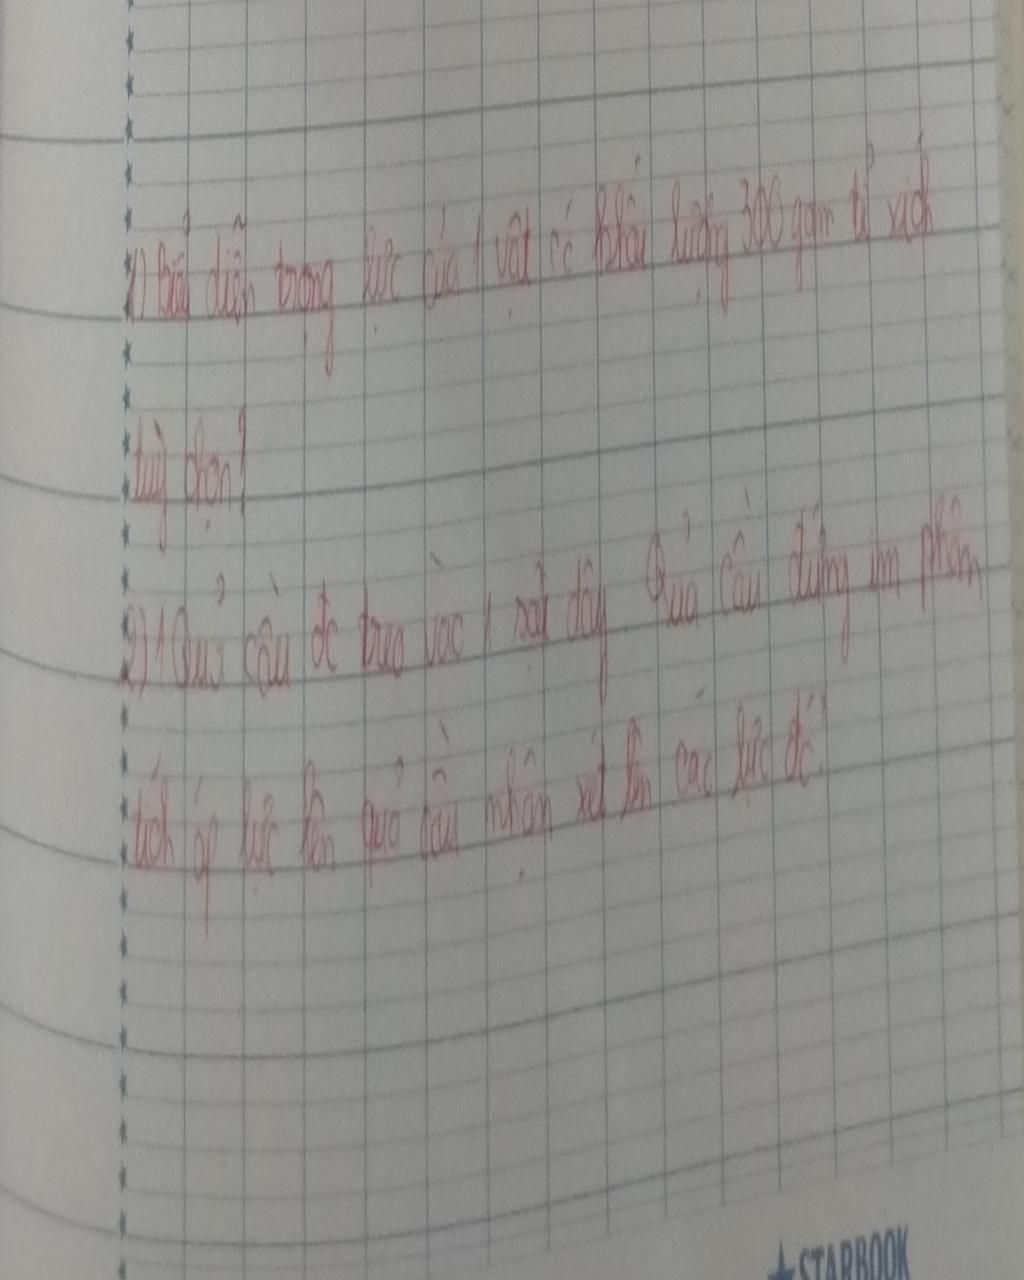 1) Biểu diễn trọng lực của 1 vật có khối lượng 300 gam tỉ xích
tuỳ chọn?
2) 1 Quả cầu đc treo vào 1 sợi dây Quả cầu đứng im phân
tích áp lực lên quả cầu nhận xét lên các lực đó
★STARBOOK